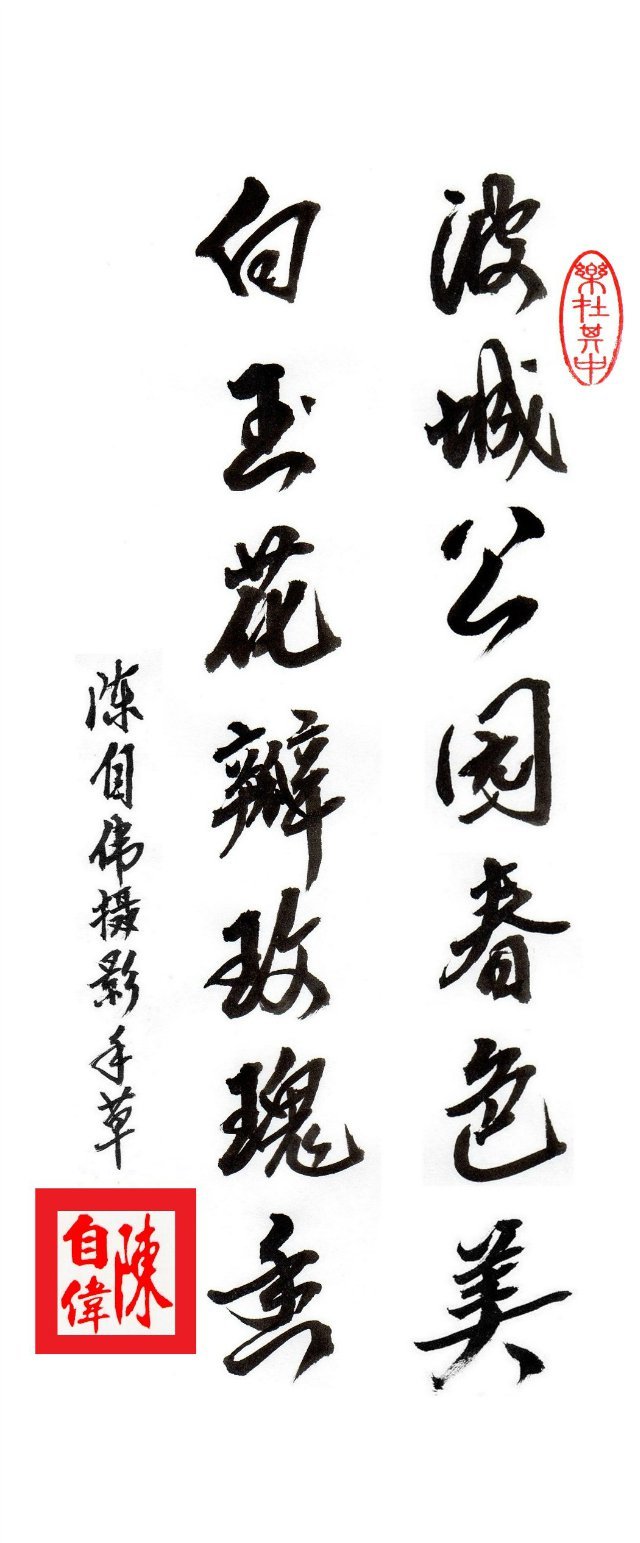 樂在其中
波城公園春色美
白玉花瓣玫瑰香
陈自伟摄影手草
陳自偉